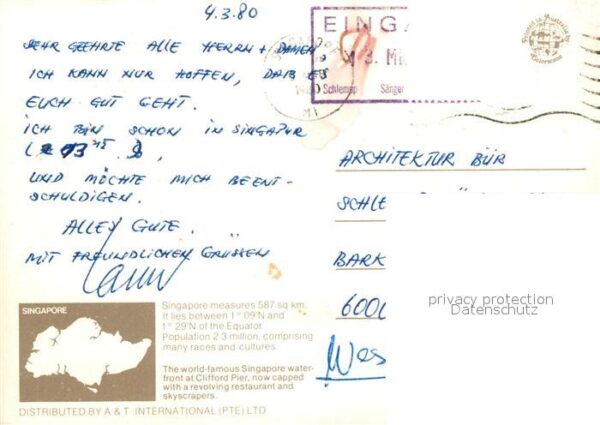 4.3.80
SEHR GEEHRTE ALLE HERRN + DAMEN
ICH KANN NUR HOFFEN, DAß ES
EUCH GUT GEHT.
ICH BIN SCHON IN SINGAPUR
UND MÖCHTE MICH BEENT-
SCHULDIGEN.
ALLES GUTE.
MIT FREUNDLICHEN GRÜSSEN
EINGA
3. MR
Schlemp Sänger
Printed in Australia by
ARCHITEKTUR BÜR
SCHLE
BARK
600
Wes
privacy protection
Datenschutz
SINGAPORE
Singapore measures 587 sq km.
It lies between 1° 09'N and
1° 29'N of the Equator.
Population 2.3 million, comprising
many races and cultures.
The world-famous Singapore water-
front at Clifford Pier, now capped
with a revolving restaurant and
skyscrapers.
DISTRIBUTED BY A & T INTERNATIONAL (PTE) LTD